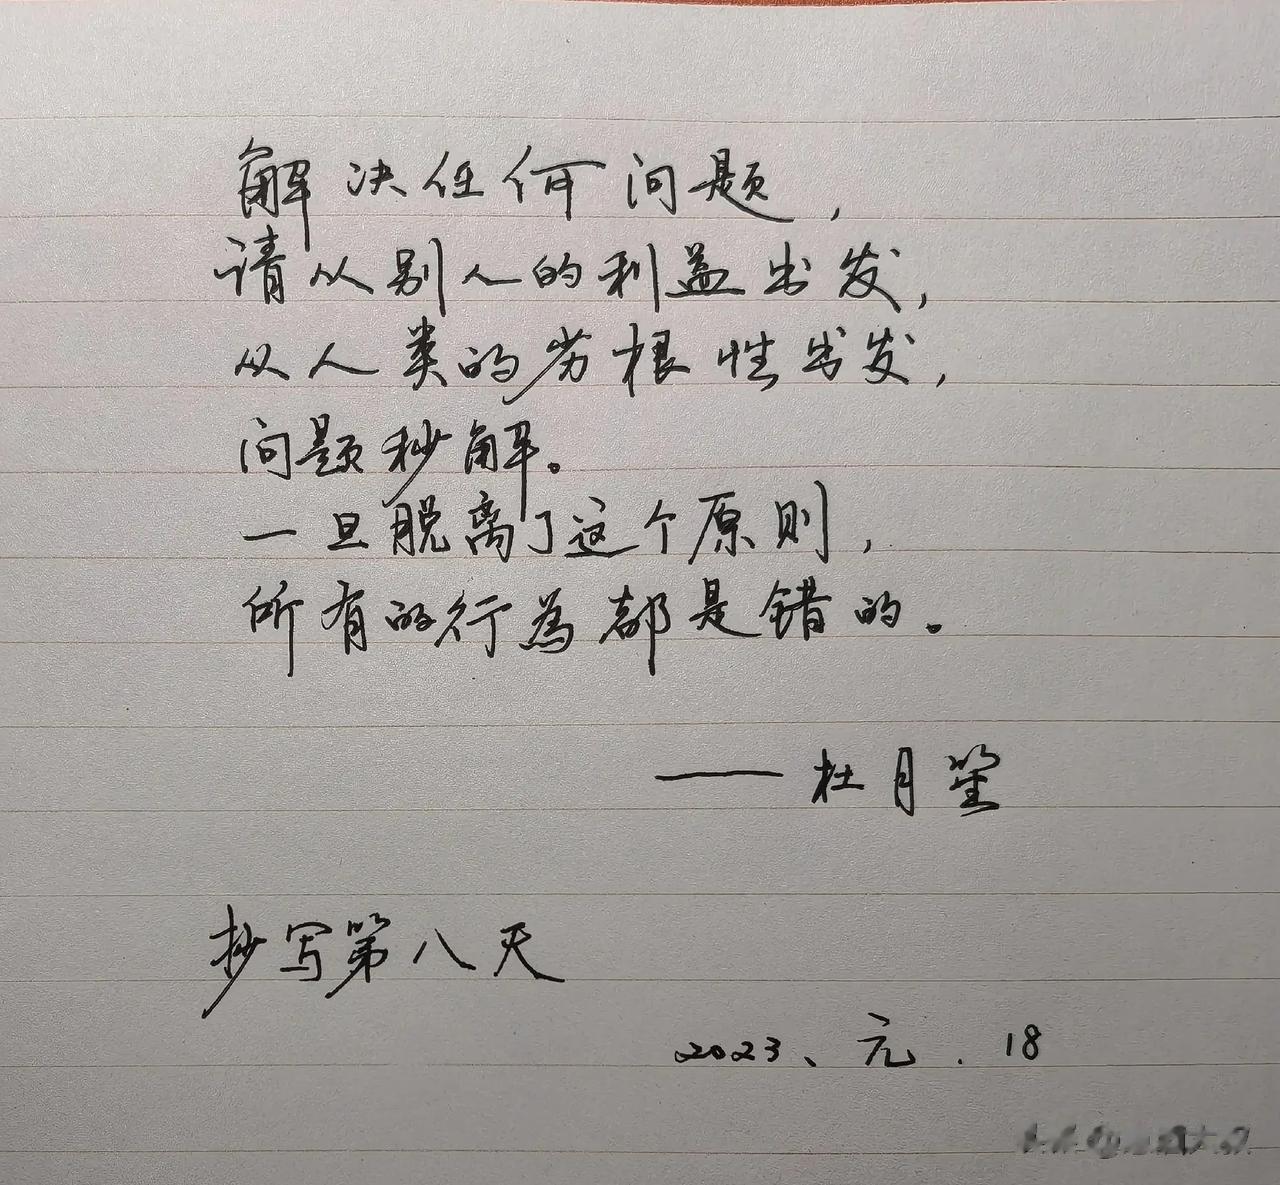 解决任何问题，
请从别人的利益出发，
从人类的劣根性出发，
问题秒解。
一旦脱离了这个原则，
所有的行為都是错的。
——杜月笙
抄写第八天
2023、元.18